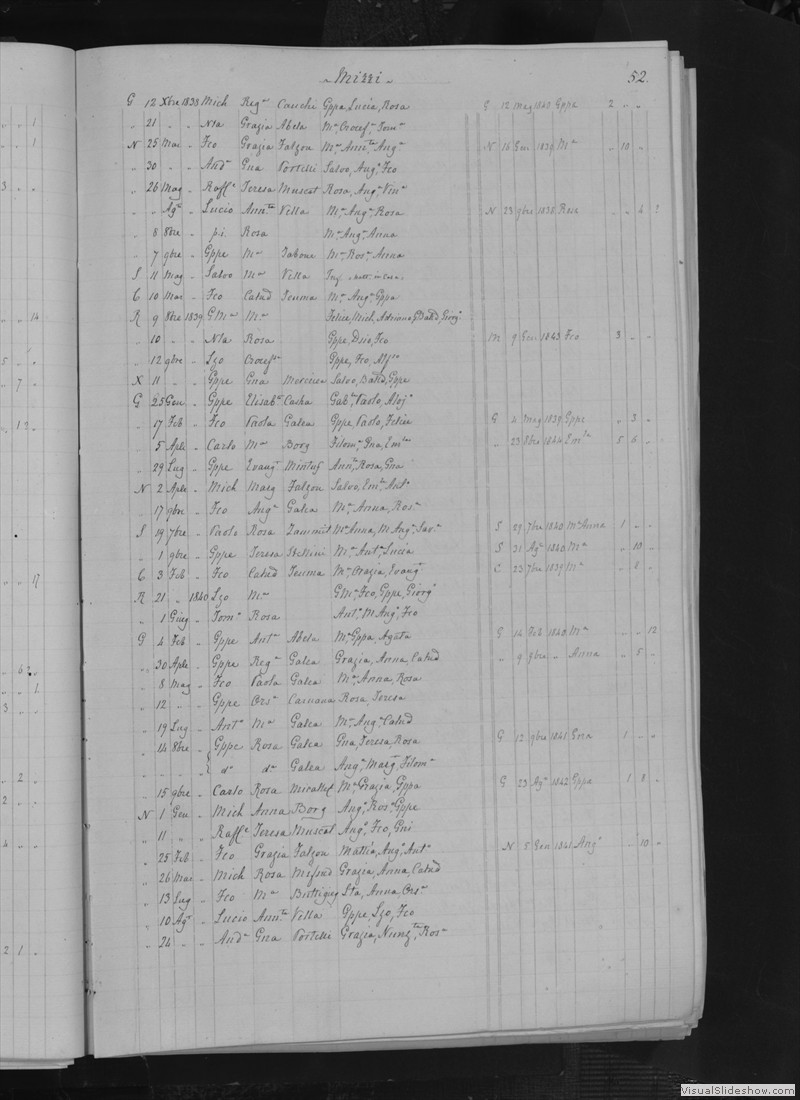 Mizzi 52.
G 12 Xbre 1838 Mich Regª Cauchi Gppa, Lucia, Rosa G 12 Mag 1840 Gppa 2 " "
" 21 " " Nta Grazia Abela Mª, Crocefª, Tomª
N 25 Mar " Fco Grazia Falzon Mª, Annᵗᵃ, Angª N 15 Gen 1839 Mª " 10 "
" 30 " " Andª Gna Portelli Salvo, Angª, Fco
" 26 Mag " Raffᵉ Teresa Muscat Rosa, Angª
" " Agº " Lucio Annᵗᵃ Villa Mª, Angª, Rosa N 23 9bre 1838 " 4
" 8 8bre " p.i. Rosa Mª, Angª, Anna
" 7 9bre " Gppe Mª Tabone Mª, Rosª, Anna
S 11 Mag " Salvo Mª Villa
C 10 Mar " Fco Catud Teuma Mª, Angª, Gppa
R 9 8bre 1839 G Mª Mª Felice, Mich, Adriano,
" 10 " " Nta Rosa Gppe, Fco M 9 Gen 1843 Fco 3 " "
" 12 9bre " Lzo Crocefª Gppe, Fco,
X 11 " " Gppe Gna Salvo, Gppe
G 25 Gen " Gppe Elisabª Cachia Gabª, Paolo, Aloj
" 17 Feb " Fco Paola Galea Gppe, Paolo, Felice G 4 Mag 1839 Gppe " 3 "
" 5 Aple " Carlo Mª Borg Filomª, Gna, Emᵗᵃ " 23 8bre 1844 Emᵗᵃ 5 6 "
" 29 Lug " Gppe Evangª Mintuf Annᵗᵃ, Rosa, Gna
N 2 Aple " Mich Marg Falzon Salvo, Emᵗᵃ, Antª
" 17 9bre " Fco Angª Galea Mª, Anna, Rosª
S 19 7bre " Paolo Rosa Zammit Mª Anna, M Angª, Savª S 29 7bre 1840 Mª Anna 1 " "
" 1 9bre " Gppe Teresa Stellini Mª, Antª, Lucia S 31 Agº 1840 Mª " 10 "
C 3 Feb " Fco Catud Teuma Mª, Grazia, Evangª C 23 7bre 1839 Mª " 8 "
R 21 " 1840 Lzo Mª G Mª, Fco, Gppe, Giorgº
" 1 Giug " Tomº Rosa Antº, M Angº, Fco
G 4 Feb " Gppe Antª Abela Mª, Gppa, Agata G 14 Feb 1840 Mª " " 12
" 30 Aple " Gppe Regª Galea Grazia, Anna, Catud " 9 9bre " Anna " 5 "
" 8 Mag " Fco Paola Galea Mª, Anna, Rosa
" 12 " " Gppe Orsª Caruana Rosa, Teresa
" 19 Lug " Antº Mª Galea Mª, Angª, Catud
" 14 8bre " Gppe Rosa Galea Gna, Teresa, Rosa G 12 9bre 1841 1 " "
" " " " dº dª Galea Angª, Margª, Filomª
" 15 9bre " Carlo Rosa Micallef Mª, Grazia, Gppa G 23 Agº 1842 Gppa 1 8 "
N 1 Gen " Mich Anna Borg Angª, Rosª, Gppe
" 11 " " Raffᵉ Teresa Muscat Angº, Fco, Gni
" 25 Feb " Fco Grazia Falzon Mattia, Angº, Antº N 5 Gen 1841 Angº " 10 "
" 26 Mar " Mich Rosa Mifsud Grazia, Anna, Catud
" 13 Lug " Fco Mª Buttigieg Sta, Anna, Orsª
" 10 Agº " Lucio Annᵗᵃ Villa Gppe, Lzo, Fco
" 24 " " Andª Gna Portelli Grazia, Nunzᵗᵃ, Rosª
VisualSlideshow.com